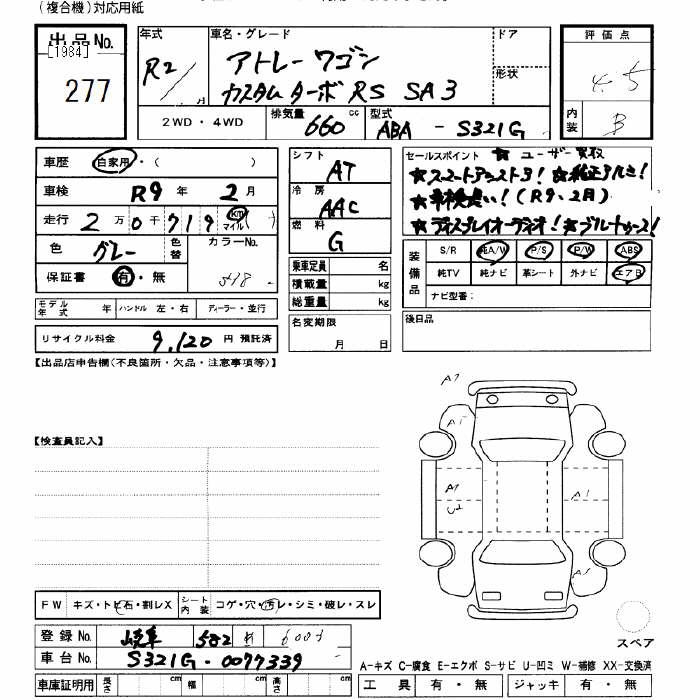 (複合機)対応用紙
出品No. 年式 車名・グレード ドア 評価点
[1984] R2 アトレーワゴン 4.5
277 月 カスタムターボRS SA3 形状
2WD・4WD 排気量 660 cc 型式 ABA - S321G 内装 B
車歴 自家用・( ) シフト AT セールスポイント ★ユーザー買取
★スマートアシスト3! ★純正アルミ!
車検 R9年2月 冷房 AAC ★車検長い!(R9.2月)
走行 2万0千719 km マイル 燃料 G ★ディスプレイオーディオ! ★ブルートゥース!
色 グレー 色替 カラーNo.
保証書 有・無 乗車定員 名 装備品 S/R 純A/W P/S P/W ABS
積載量 kg 純TV 純ナビ 革シート 外ナビ エアB
総重量 kg ナビ型番:
モデル年式 年 ハンドル 左・右 ディーラー・並行 名変期限 月 日 後日品
リサイクル料金 9,120 円 預託済
【出品店申告欄(不良箇所・欠品・注意事項等)】
A1
A1
【検査員記入】
A1 A1
A1
FW キズ・トビ石・割レX シート内装 コゲ・穴・汚レ・シミ・破レ・スレ
登録No. 岐阜 582
スペア
車台No. S321G-0077339
A-キズ C-腐食 E-エクボ S-サビ U-凹ミ W-補修 XX-交換済
車庫証明用 長さ cm 幅 cm 高さ cm 工具 有・無 ジャッキ 有・無